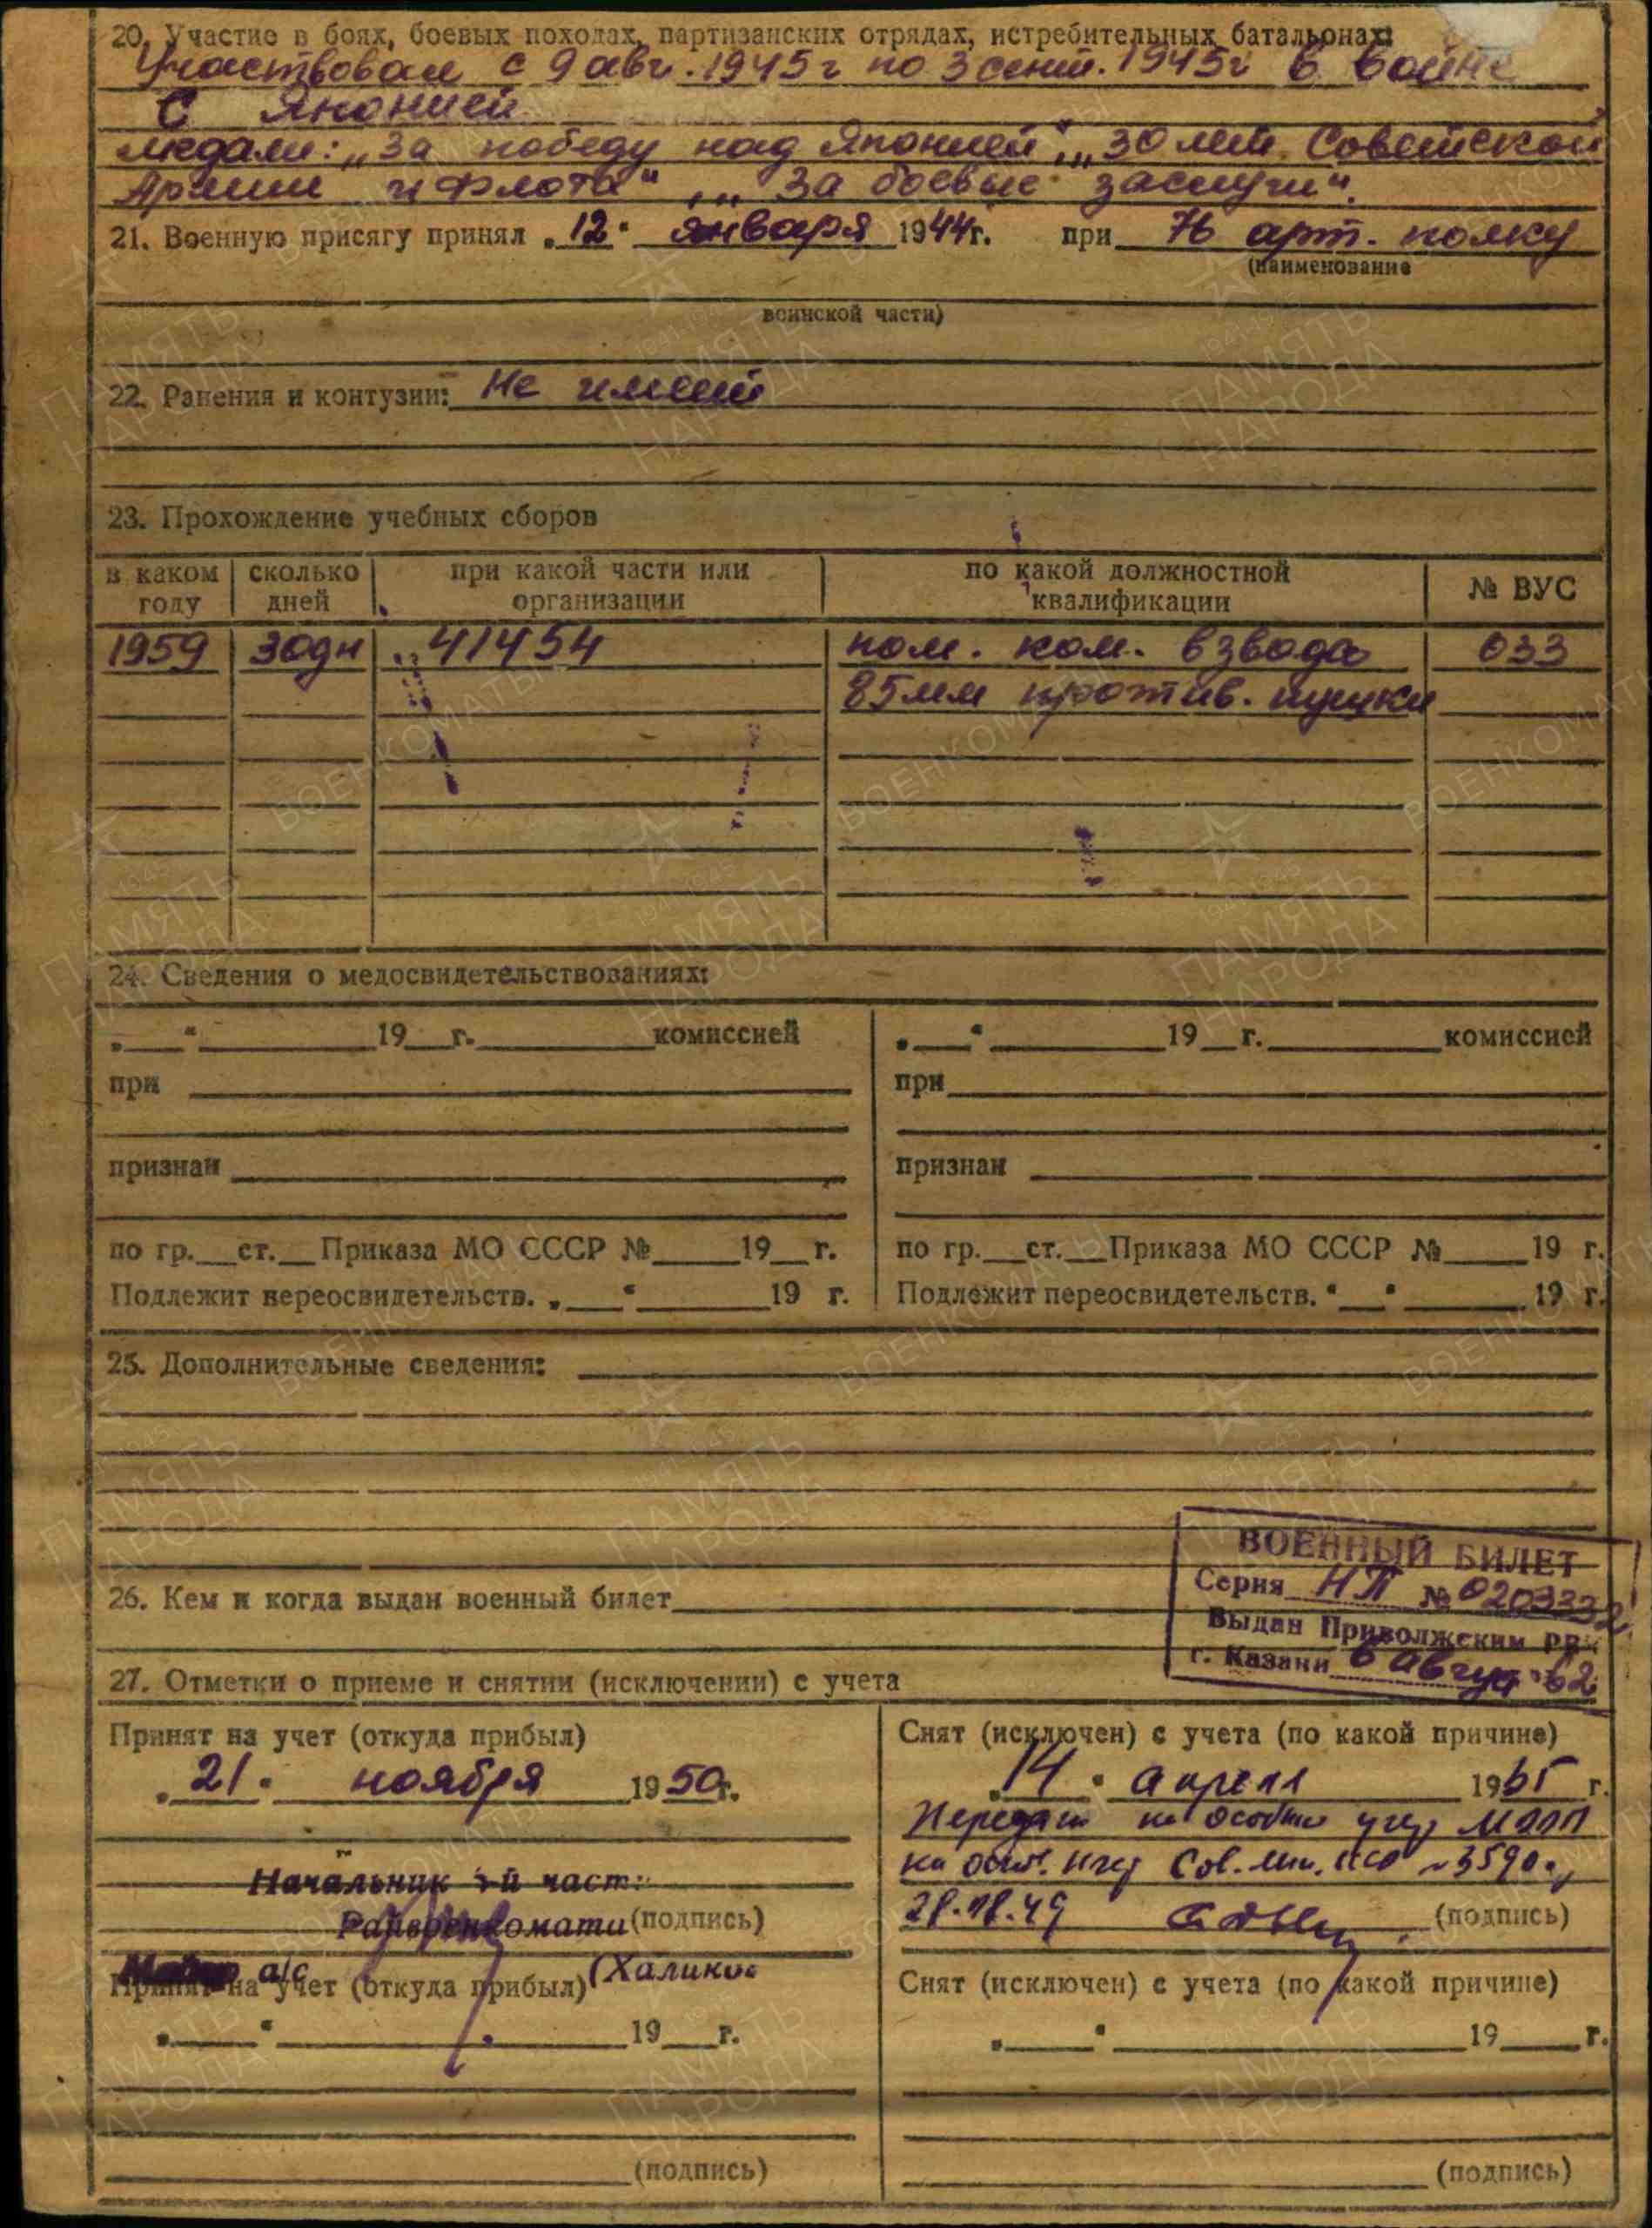 20. Участие в боях, боевых походах, партизанских отрядах, истребительных батальонах:
Участвовал с 9 авг. 1945 г по 3 сент. 1945 г в войне
с Японией
медали: „За победу над Японией", „30 лет Советской
Армии и Флота", „За боевые заслуги".
21. Военную присягу принял „12" января 1944 г. при 76 арт. полку
(наименование
воинской части)
22. Ранения и контузии: Не имеет
23. Прохождение учебных сборов
в каком году сколько дней при какой части или организации по какой должностной квалификации № ВУС
1959 30 дн 41454 пом. ком. взвода 033
85 мм против. пушки
24. Сведения о медосвидетельствованиях:
„ " 19 г. комиссией
при
признан
по гр. ст. Приказа МО СССР № 19 г.
Подлежит переосвидетельств. „ " 19 г.
„ " 19 г. комиссией
при
признан
по гр. ст. Приказа МО СССР № 19 г.
Подлежит переосвидетельств. " " 19 г.
25. Дополнительные сведения:
26. Кем и когда выдан военный билет
ВОЕННЫЙ БИЛЕТ
Серия НП № 0203332
Выдан Приволжским РВК
г. Казани 6 август 62
27. Отметки о приеме и снятии (исключении) с учета
Принят на учет (откуда прибыл)
„21" ноября 1950 г.
Начальник части
Райвоенкомата (подпись)
а/с (Халиков
Принят на учет (откуда прибыл)
„ " 19 г.
(подпись)
Снят (исключен) с учета (по какой причине)
„14" апреля 1965 г.
Передан на особый учет
на осн. Сов. Мин. СССР № 3590
49 (подпись)
Снят (исключен) с учета (по какой причине)
„ " 19 г.
(подпись)